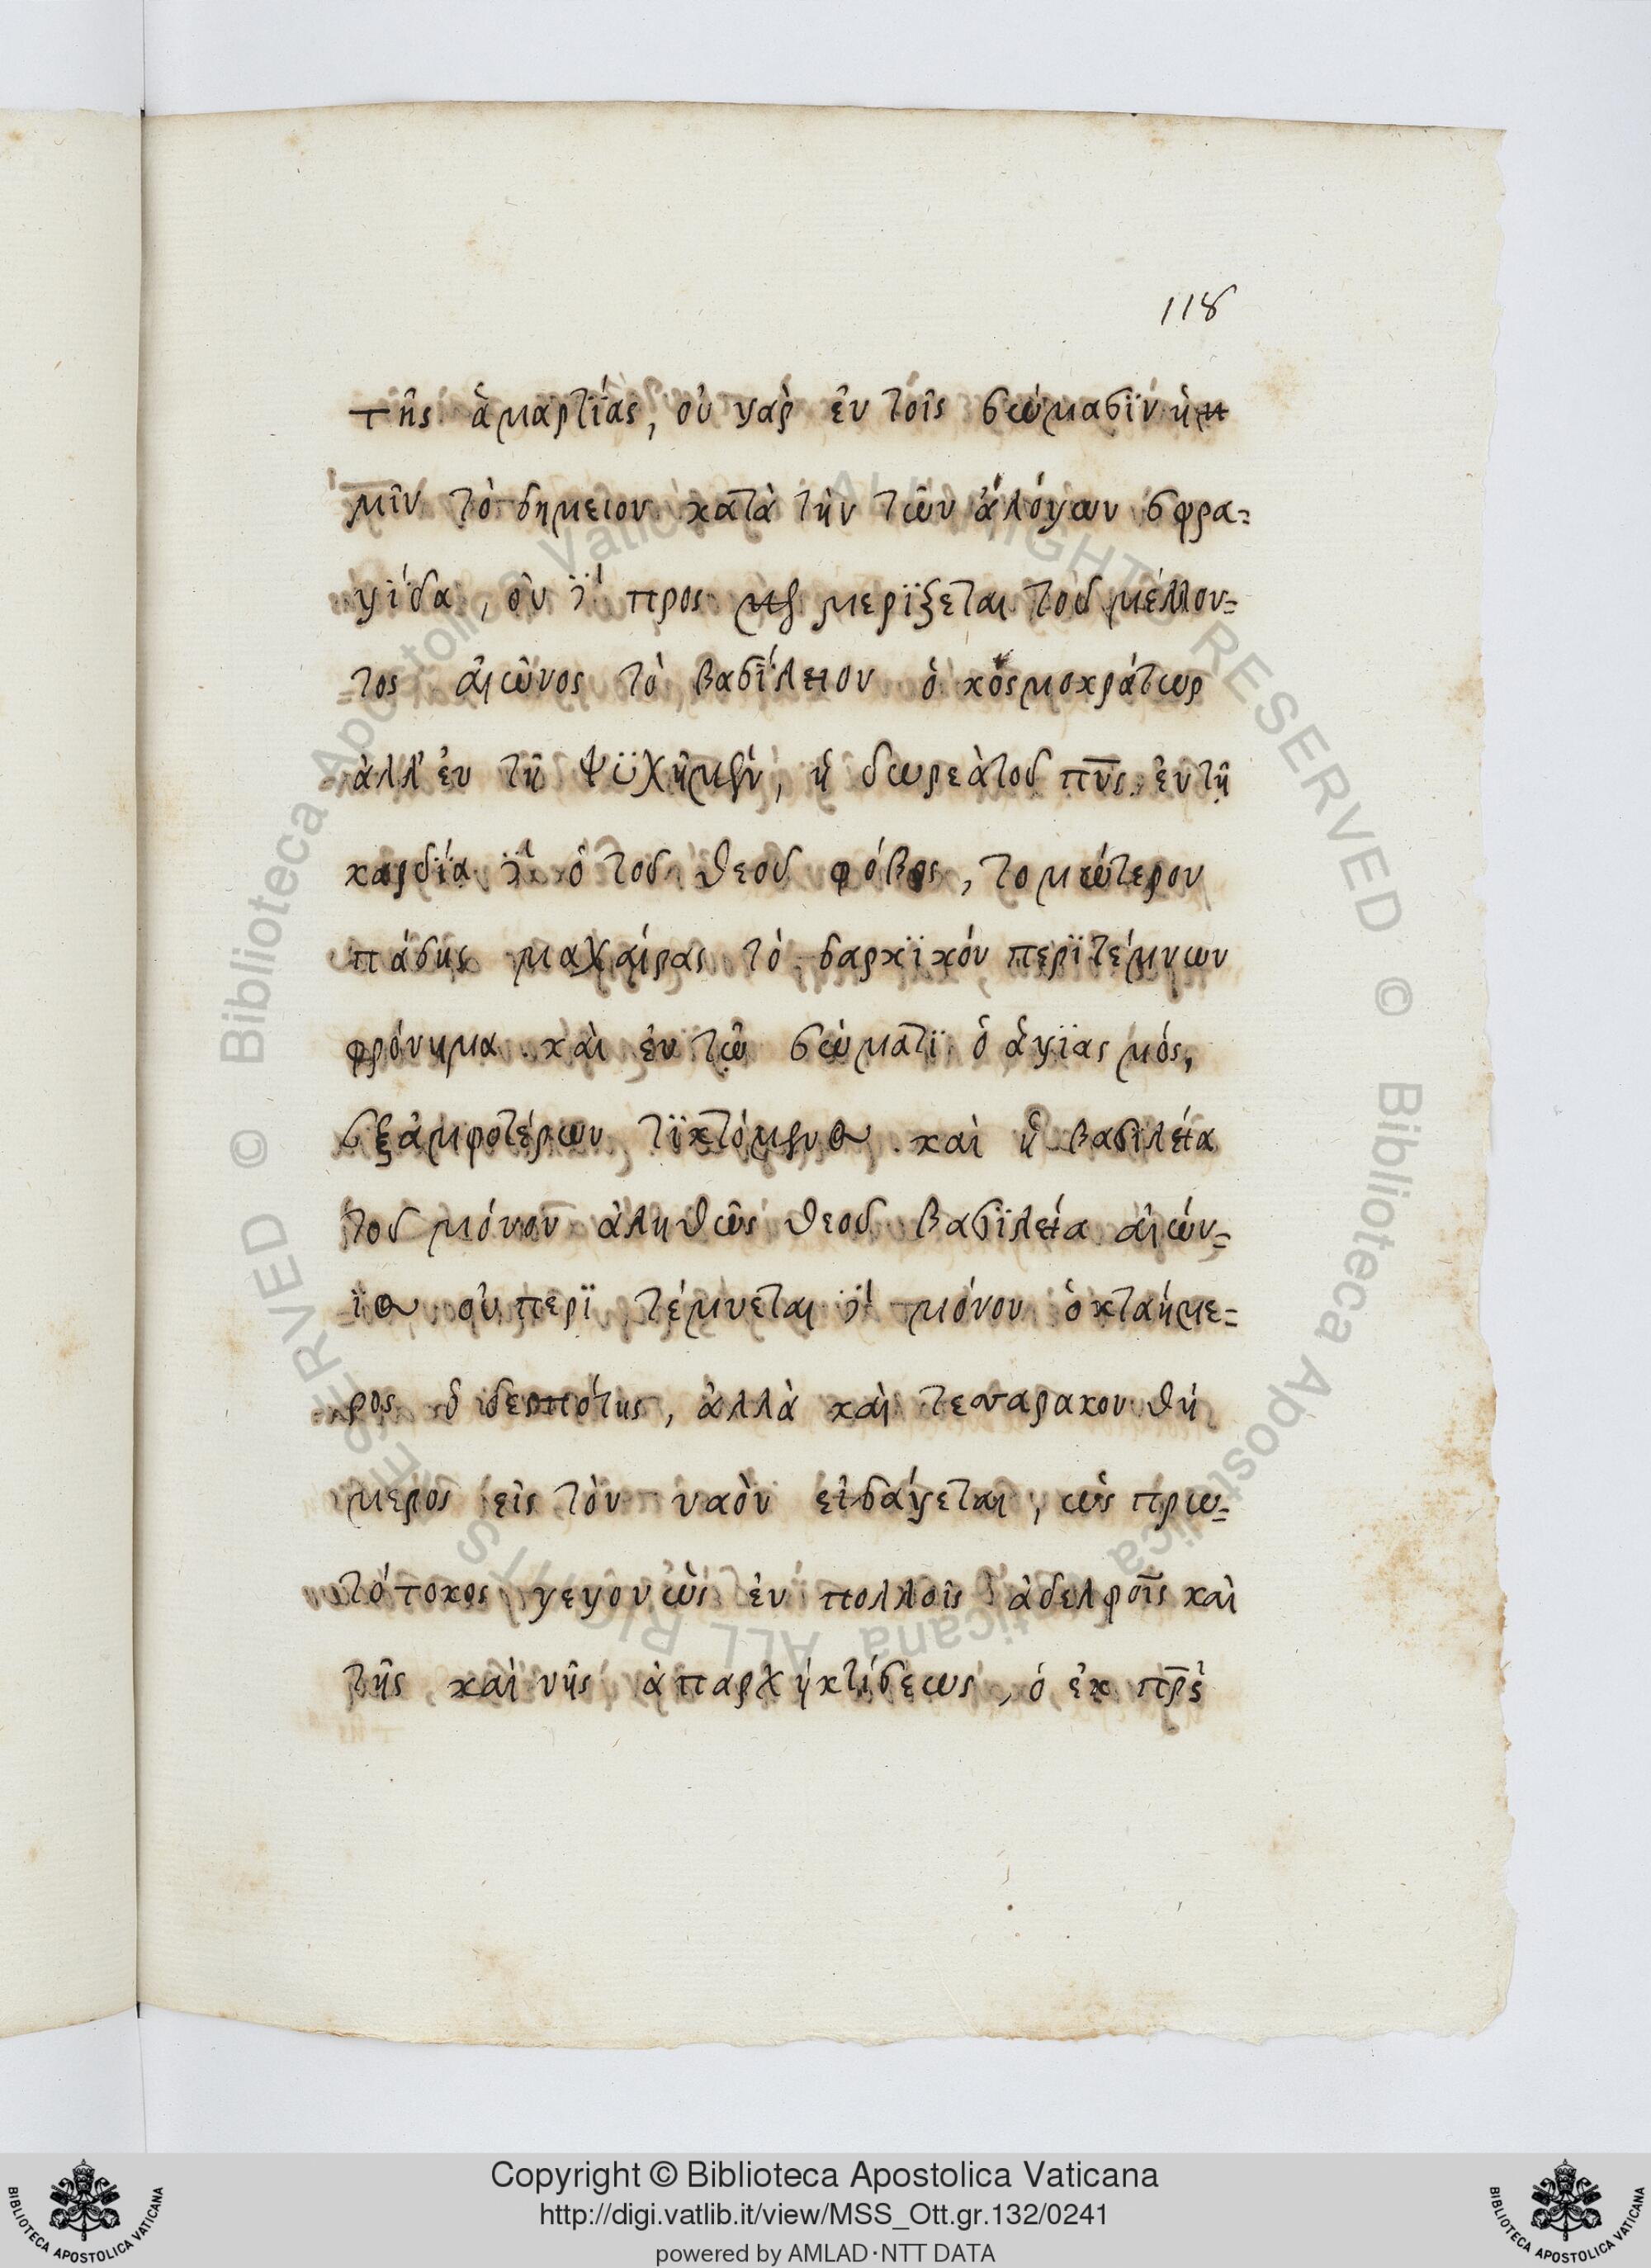 118
τῆς ἁμαρτίας, οὐ γαρ ἐν τοῖς σώμασϊν ἡ
μῖν τὸ σημειον κατὰ τὴν τῶν ἀλόγων σφρα=
γίδα, οὐ προς μερϊξεται τοῦ μέλλον=
τος αἰῶνος τὸ βασίλειον ὁ κόσμοκράτωρ
ἀλλ' ἐν τῆ ψϋχῆ, ἡ δωρεὰ τοῦ πν̅ς ἐν τῆ
καρδία ὁ τοῦ θεοῦ φόβος, τομώτερον
πάσης μαχαίρας τὸ σαρκϊκόν περϊτέμνων
φρόνημα. καὶ ἐν τῶ σώματϊ ὁ ἁγϊασμός,
ἐξ ἀμφοτέρων. καὶ ἡ βασιλεία
τοῦ μόνου ἀληθῶς θεοῦ βασϊλεία αἰών=
ϊος οὐ περϊ τέμνεται μόνον ὀκταήμε=
ρος ὁ δεσπότης, ἀλλὰ καὶ τεσσαρακονθή
μερος εἰς τὸν ναὸν εἰσάγεται, ὡς πρω=
τότοκος γεγονὼς ἐν πολλοῖς ἀδελφοῖς καὶ
τῆς καὶ νῆς ἀπαρχὴ κτίσεως, ὁ ἐκ πρ̅ς
Copyright © Biblioteca Apostolica Vaticana
http://digi.vatlib.it/view/MSS_Ott.gr.132/0241
powered by AMLAD·NTT DATA
BIBLIOTECA APOSTOLICA VATICANA
BIBLIOTECA APOSTOLICA VATICANA
© Biblioteca Apostolica Vaticana ALL RIGHTS RESERVED © Biblioteca Apostolica Vaticana ALL RIGHTS RESERVED